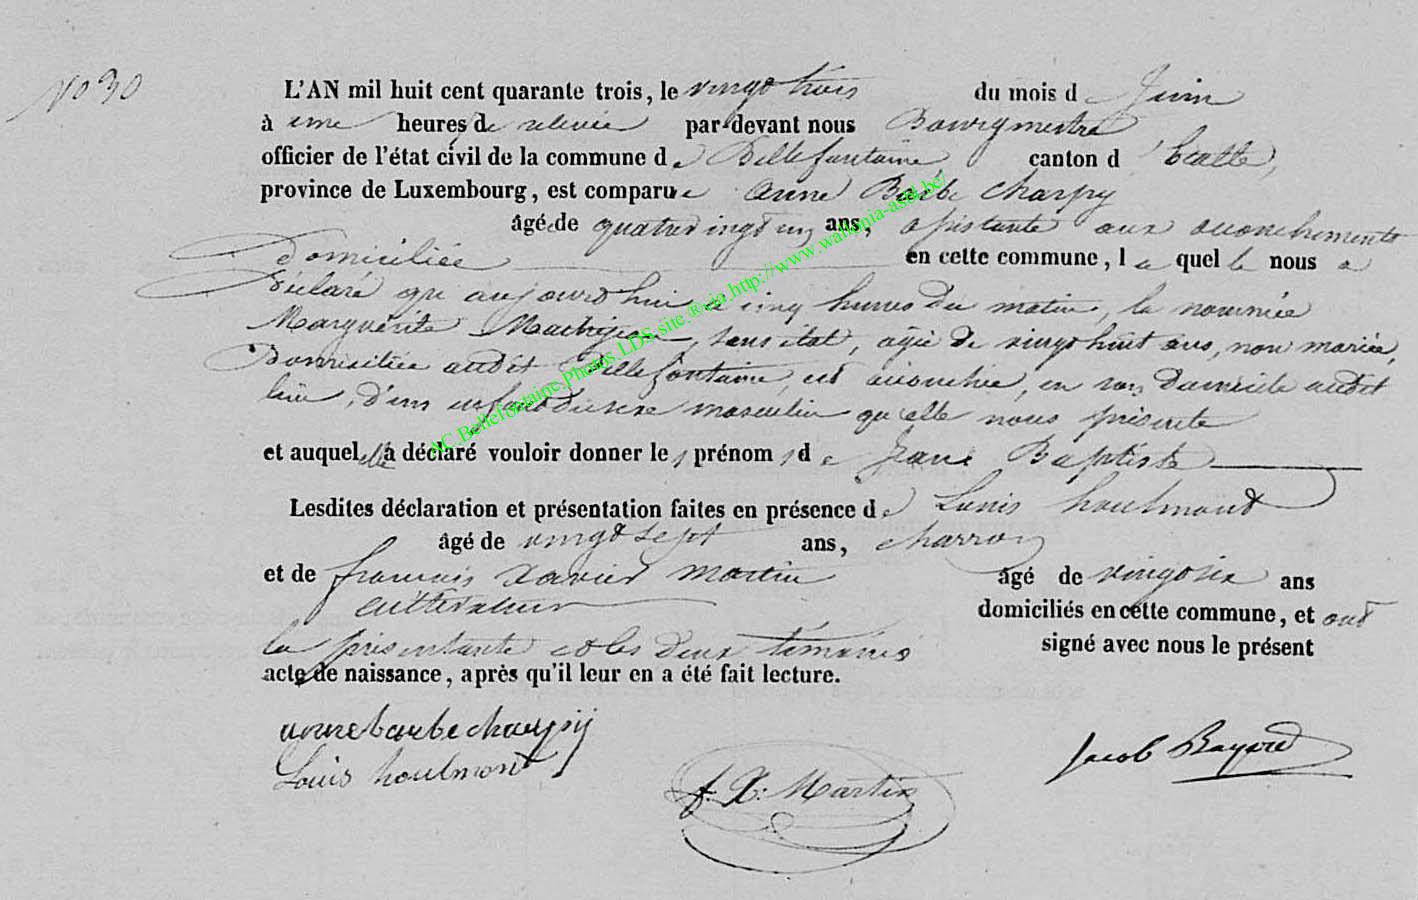 No 30
L'AN mil huit cent quarante trois, le vingt trois du mois de Juin
à une heures de relevée par-devant nous Bourgmestre
officier de l'état civil de la commune de Bellefontaine canton d'Etalle,
province de Luxembourg, est comparue Anne Barbe Charpy
âgée de quatrevingt un ans, assistante aux accouchements
Domiciliée en cette commune, laquelle nous a
déclaré qu'aujourd'hui à cinq heures du matin, la nommée
Marguérite, sans état, agée de vingt huit ans, non mariée,
Domiciliée audit Bellefontaine, est accouchée, en son domicile audit
lieu, d'un enfant du sexe masculin qu'elle nous présente
et auquel elle a déclaré vouloir donner les prénoms de Jean Baptiste
Lesdites déclaration et présentation faites en présence de Louis houlmont
âgé de vingt sept ans, charron
et de francois Xavier Martin âgé de vingt six ans
cultivateur domiciliés en cette commune, et ont
la présentante et les deux témoins signé avec nous le présent
acte de naissance, après qu'il leur en a été fait lecture.
anne barbe charpy
Louis houlmont
f. X: Martin
Jacob Bayard
AC.Bellefontaine.Photos.LDS.site.®via.http://www.wallonia-asbl.be/